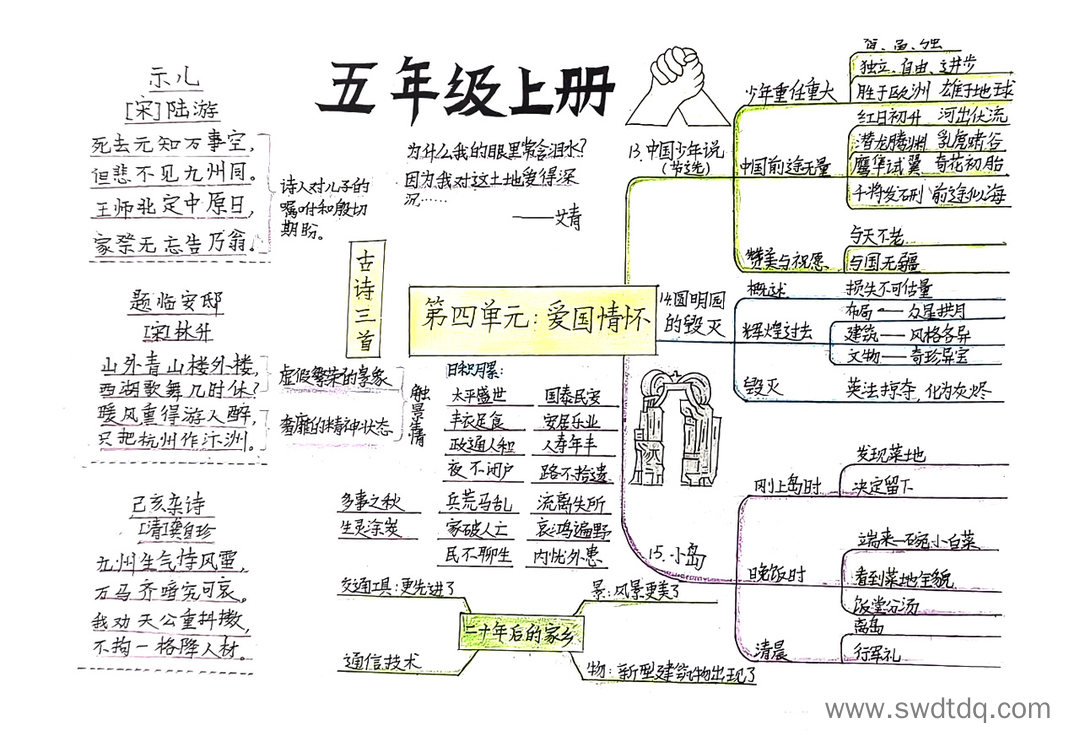 五年级上册
示儿
[宋]陆游
死去元知万事空，
但悲不见九州同。
王师北定中原日，
家祭无忘告乃翁。
诗人对儿子的
嘱咐和殷切
期盼。
题临安邸
[宋]林升
山外青山楼外楼，
西湖歌舞几时休？
暖风熏得游人醉，
只把杭州作汴洲。
虚假繁荣的景象
奢靡的精神状态
触景生情
己亥杂诗
[清]龚自珍
九州生气恃风雷，
万马齐喑究可哀。
我劝天公重抖擞，
不拘一格降人材。
古诗三首
为什么我的眼里常含泪水？
因为我对这土地爱得深
沉……
——艾青
第四单元：爱国情怀
日积月累：
太平盛世 国泰民安
丰衣足食 安居乐业
政通人和 人寿年丰
夜不闭户 路不拾遗
多事之秋 兵荒马乱 流离失所
生灵涂炭 家破人亡 哀鸿遍野
民不聊生 内忧外患
二十年后的家乡
交通工具：更先进了
景：风景更美了
通信技术
物：新型建筑物出现了
13.中国少年说
（节选）
少年重任重大
独立、自由、进步
胜于欧洲 雄于地球
中国前途无量
红日初升 河出伏流
潜龙腾渊 乳虎啸谷
鹰隼试翼 奇花初胎
干将发硎 前途似海
赞美与祝愿
与天不老
与国无疆
14.圆明园
的毁灭
概述
损失不可估量
辉煌过去
布局——众星拱月
建筑——风格各异
文物——奇珍异宝
毁灭
英法掠夺，化为灰烬
15.小岛
刚上岛时
发现菜地
决定留下
晚饭时
端来一碗小白菜
看到菜地全貌
饭堂分汤
清晨
离岛
行军礼
www.swdtdq.com